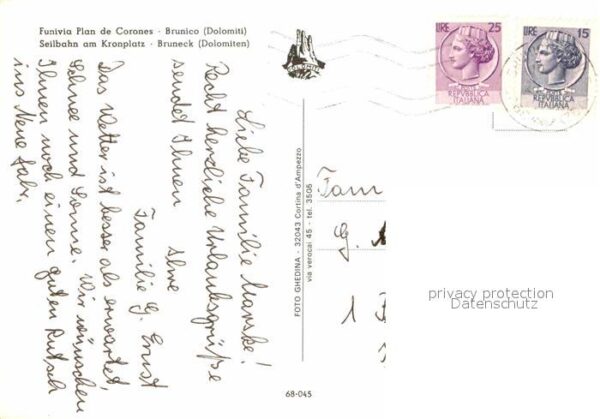 Funivia Plan de Corones - Brunico (Dolomiti)
Seilbahn am Kronplatz - Bruneck (Dolomiten)
Liebe Familie Manske!
Recht herzliche Urlaubsgrüße
sendet Ihnen
Ihre
Familie G. Ernst
Das Wetter ist besser als erwartet,
Schnee und Sonne. Wir wünschen
Ihnen noch einen guten Rutsch
ins Neue Jahr.
FOTO GHEDINA - 32043 Cortina d'Ampezzo
via verocai 45 - tel. 3505
68-045
LIRE 25
REPVBBLICA
ITALIANA
LIRE 15
REPVBBLICA
ITALIANA
Fam
G.
1
privacy protection
Datenschutz